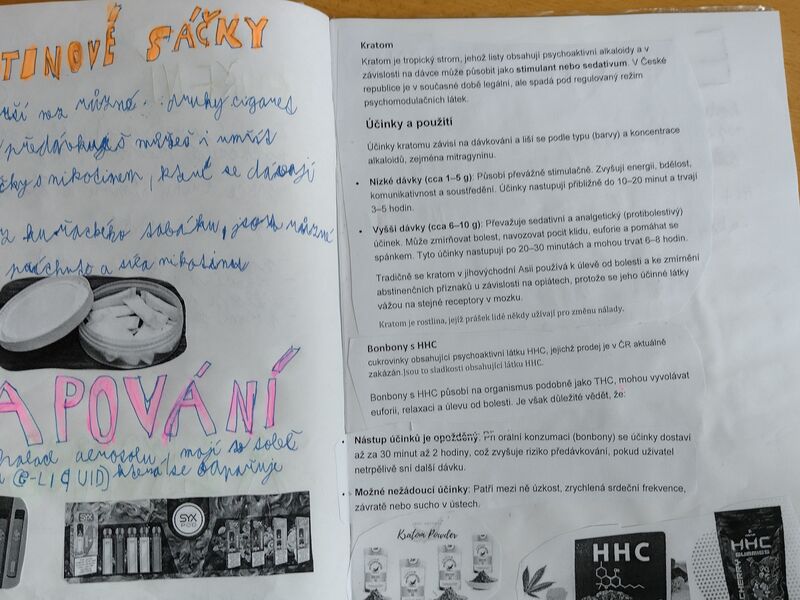 TINOVÉ SÁČKY
na různé druhy cigaret
předávkuješ můžeš i umřít
s nikotinem, které se dávají
z kuřackého tabáku, jsou různé
a síla nikotinu
APOVÁNÍ
aerosolu, mají v sobě
(E-LIQUID) která se odpařuje
SYX
POD
Kratom
Kratom je tropický strom, jehož listy obsahují psychoaktivní alkaloidy a v
závislosti na dávce může působit jako stimulant nebo sedativum. V České
republice je v současné době legální, ale spadá pod regulovaný režim
psychomodulačních látek.
Účinky a použití
Účinky kratomu závisí na dávkování a liší se podle typu (barvy) a koncentrace
alkaloidů, zejména mitragyninu.
• Nízké dávky (cca 1–5 g): Působí převážně stimulačně. Zvyšují energii, bdělost,
komunikativnost a soustředění. Účinky nastupují přibližně do 10–20 minut a trvají
3–5 hodin.
• Vyšší dávky (cca 6–10 g): Převažuje sedativní a analgetický (protibolestivý)
účinek. Může zmírňovat bolest, navozovat pocit klidu, euforie a pomáhat se
spánkem. Tyto účinky nastupují po 20–30 minutách a mohou trvat 6–8 hodin.
Tradičně se kratom v jihovýchodní Asii používá k úlevě od bolesti a ke zmírnění
abstinenčních příznaků u závislosti na opiátech, protože se jeho účinné látky
vážou na stejné receptory v mozku.
Kratom je rostlina, jejíž prášek lidé někdy užívají pro změnu nálady.
Bonbony s HHC
cukrovinky obsahující psychoaktivní látku HHC, jejichž prodej je v ČR aktuálně
zakázán. Jsou to sladkosti obsahující látku HHC.
Bonbony s HHC působí na organismus podobně jako THC, mohou vyvolávat
euforii, relaxaci a úlevu od bolesti. Je však důležité vědět, že:
• Nástup účinků je opožděný: Při orální konzumaci (bonbony) se účinky dostaví
až za 30 minut až 2 hodiny, což zvyšuje riziko předávkování, pokud uživatel
netrpělivě sní další dávku.
• Možné nežádoucí účinky: Patří mezi ně úzkost, zrychlená srdeční frekvence,
závratě nebo sucho v ústech.
Kratom Powder
HHC
HHC
GUMMIES
CHERRY